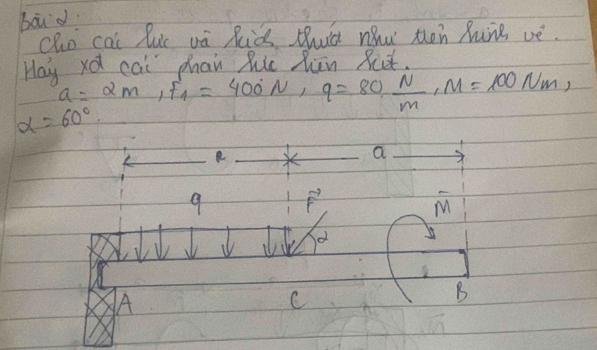 Bài 2:
Cho các lực và kích thước như trên hình vẽ.
Hãy xđ các phản lực liên kết.
a = 2m, F₁ = 400 N, q = 80 N/m, M = 100 Nm,
α = 60°.
a a
q F⃗ M⃗
α
A C B